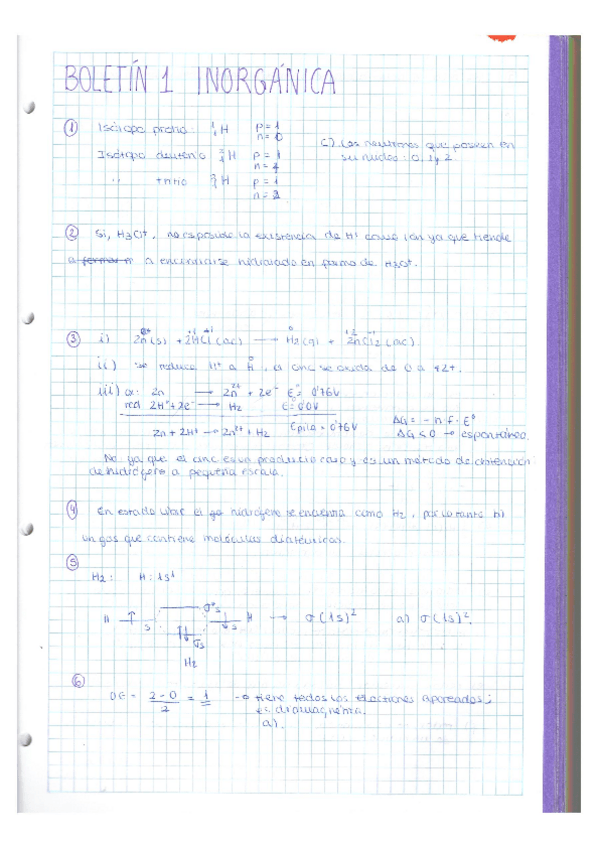 BOLETÍN 1 INORGÁNICA
① Isótopo protio: ¹₁H p=1 n=0
c) Los neutrones que poseen en su núcleo: 0, 1 y 2.
Isótopo deuterio ²₁H p=1
" tritio ³₁H p=1 n=2
② Sí, H3O+, no es posible la existencia de H+ como ion ya que tiende
a encontrarse hidratado en forma de H3O+.
③ i) Zn(s) + 2HCl(ac) → H2(g) + ZnCl2(ac)
ii) se reduce H+ a H, el cinc se oxida de 0 a +2.
iii) ox: Zn → Zn2+ + 2e- E°= 0'76V
red 2H+ + 2e- → H2 E°= 0'0V
Zn + 2H+ → Zn2+ + H2 Epila = 0'76V
ΔG = - n · F · E°
ΔG < 0 → espontáneo.
No ya que el cinc es un producto caro y es un método de obtención
de hidrógeno a pequeña escala.
④ En estado libre el gas hidrógeno se encuentra como H2, por lo tanto b)
un gas que contiene moléculas diatómicas.
⑤
H2: H: 1s¹
H S σ*s S H → σ(1s)² a) σ(1s)².
σs
H2
⑥
OE = 2-0/2 = 1 → tiene todos los electrones apareados;
es diamagnética.
a).